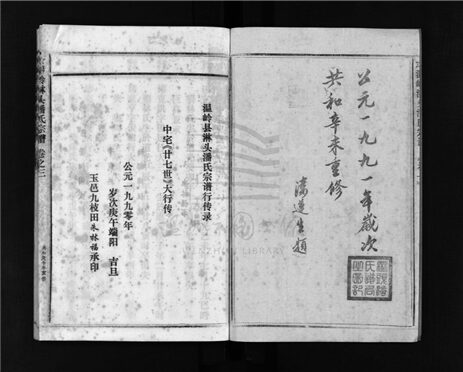 公元一九九一年岁次
共和辛未重修
潘莲生题
温岭县淋头潘氏宗谱行传录
中宅《廿七世》大行传
公元一九九零年
岁次庚午端阳 吉旦
玉邑九枝田朱林福承印
淋头潘氏宗谱 卷之三
WENZHOU LIBRARY